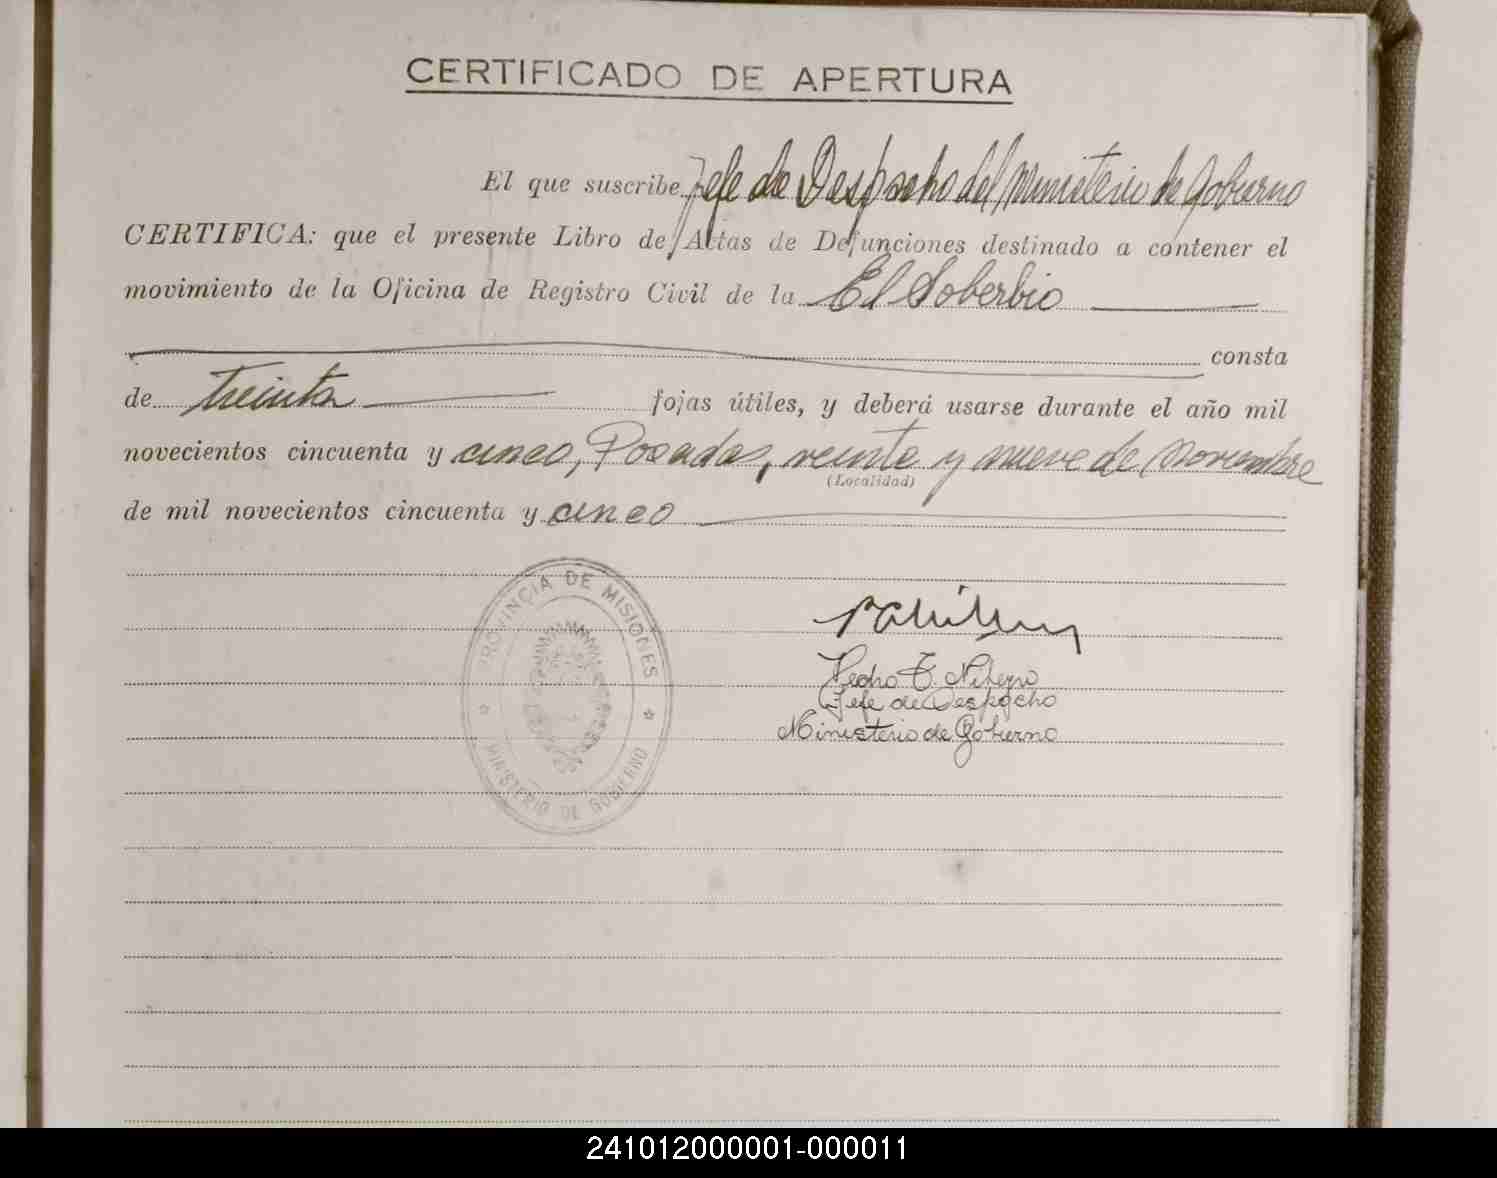 CERTIFICADO DE APERTURA
El que suscribe Jefe de Despacho del Ministerio de Gobierno
CERTIFICA: que el presente Libro de Actas de Defunciones destinado a contener el
movimiento de la Oficina de Registro Civil de la El Soberbio
consta
de treinta fojas útiles, y deberá usarse durante el año mil
novecientos cincuenta y cinco, Posadas, veinte y nueve de Noviembre
(Localidad)
de mil novecientos cincuenta y cinco
PROVINCIA DE MISIONES
MINISTERIO DE GOBIERNO
Pedro
Jefe de Despacho
Ministerio de Gobierno
241012000001-000011